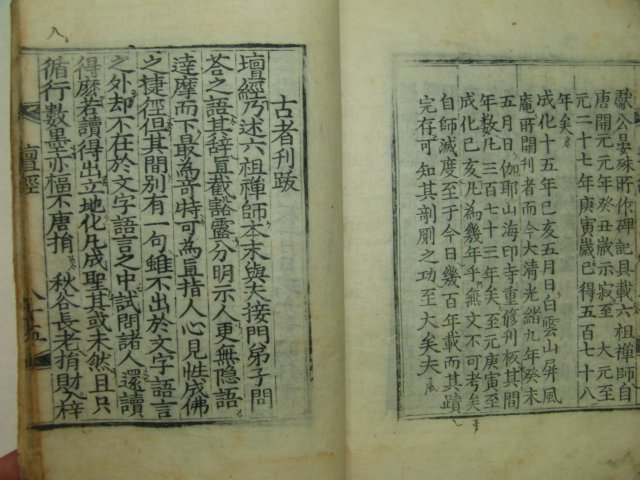 獻公晏殊所作碑記具載六祖禪師自
唐開元元年癸丑歲示寂至大元至
元二十七年庚寅歲已得五百七十八
年矣
成化十五年己亥五月日白雲山屏風
庵所開刊者而今大清光緒九年癸未
五月日伽耶山海印寺重修利板其間
年數凡三百七十三年矣至元庚寅至
成化己亥凡為幾年乎無文不可考矣
自師滅度至于今日幾百年載而其蹟
完存可知其剞劂之功至大矣夫
古者刊跋
壇經乃述六祖禪師本末與夫接門弟子問
答之語其辞直截豁露分明示人更無隐語
達摩而下最為竒特可為直指人心見性成佛
之捷徑但其間別有一句雖不出於文字語言
之外却不在於文字語言之中試問諸人還讀
得麽若讀得出立地化凡成聖其或未然且只
循行數墨亦楅不唐捐 秋谷長老捐財入梓
壇經
八十五